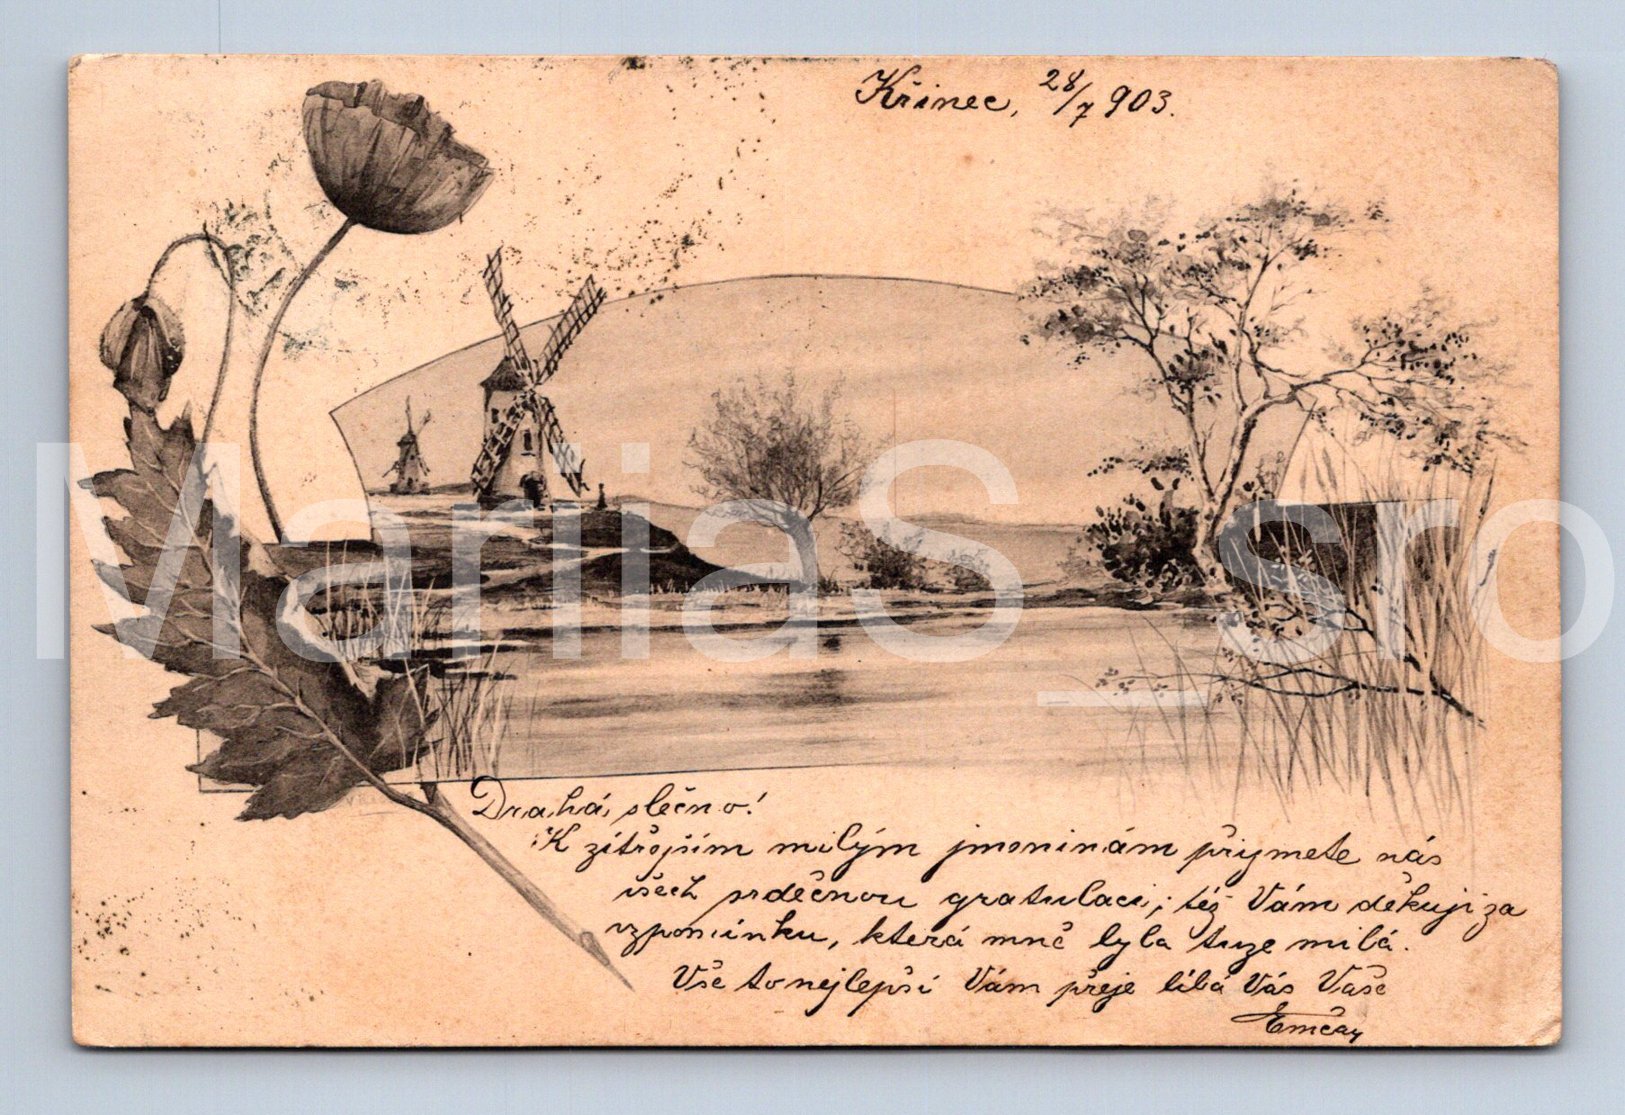 Křinec, 28/7 903.
MariiaS_sro
Drahá slečno!
K zítřejším milým jmeninám přijmete nás
všech srdečnou gratulaci; též Vám děkuji za
vzpomínku, která mně byla tuze milá.
Vše to nejlepší Vám přeje líbá Vás Vaše